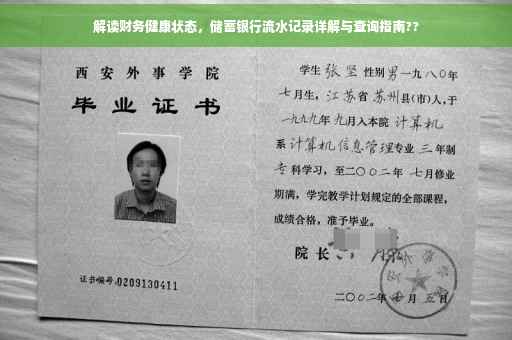 解读财务健康状态，储蓄银行流水记录详解与查询指南??
西安外事学院
毕业证书
证书编号:0209130411
学生 张坚 性别男一九八〇年
七月生，江苏省苏州县(市)人，于
一九九九年九月入本院 计算机
系计算机信息管理专业三年制
专科学习，至二〇〇二年七月修业
期满，学完教学计划规定的全部课程，
成绩合格，准予毕业。
院长
二〇〇二年 月五日